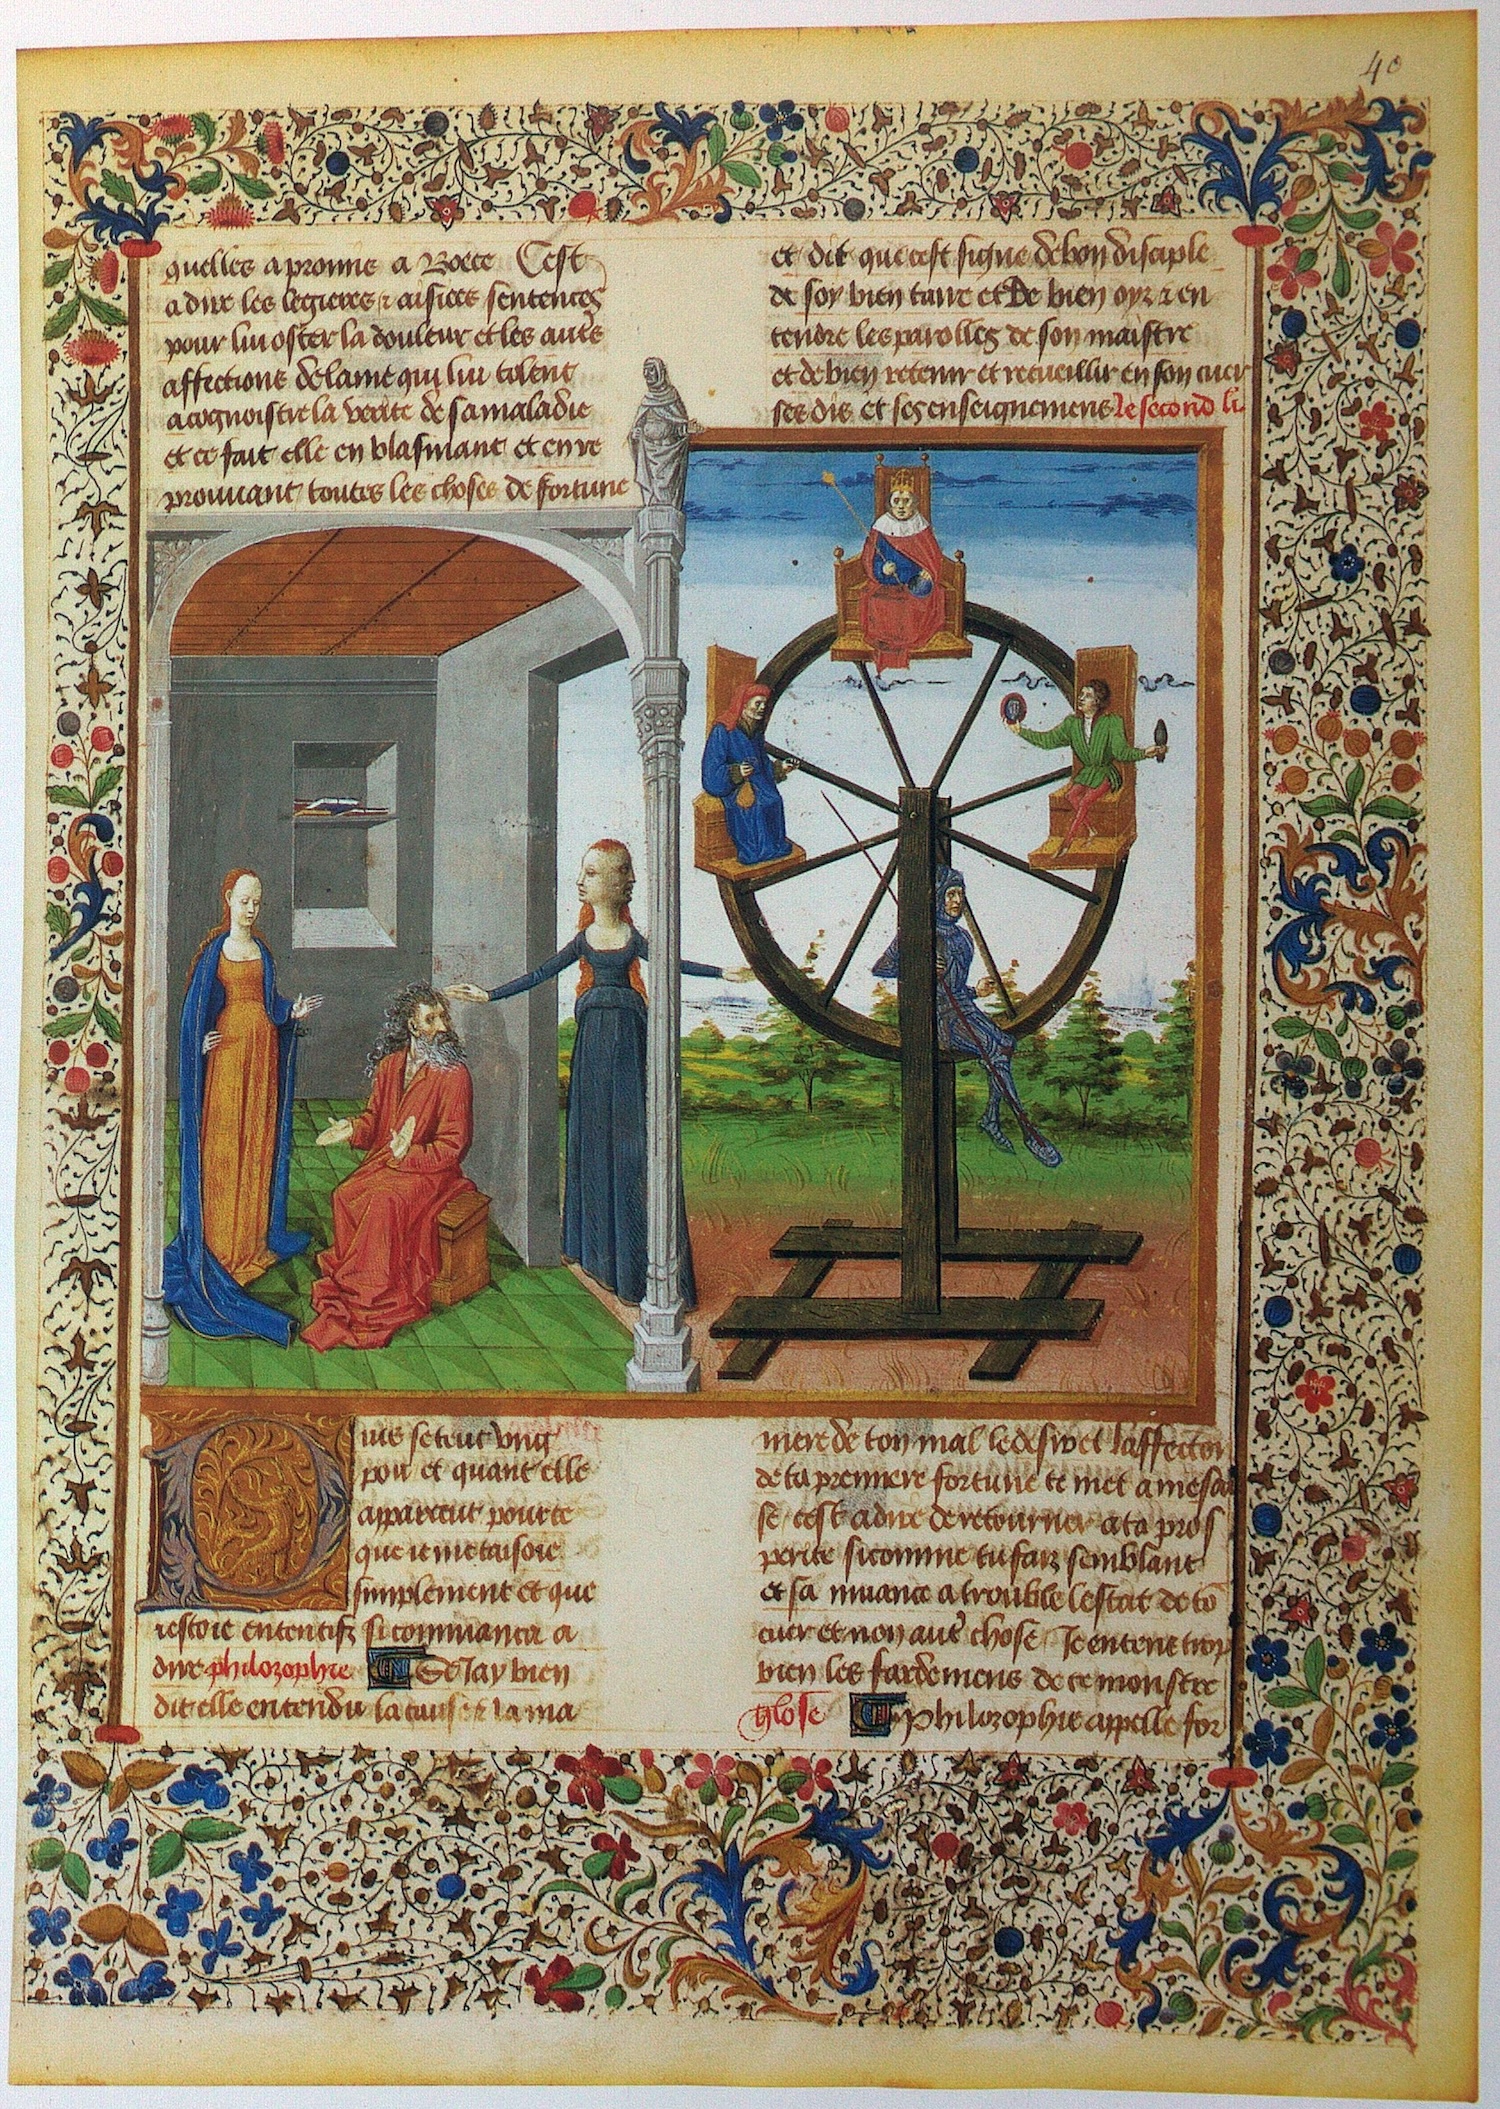 40
quelles a promis a Boece Cest
a dire les legieres et aisiees sentences
pour lui oster la douleur et les autres
affections de lame qui lui tolent
a cognoistre la verite de sa maladie
et ce fait elle en blasmant et en re
prouuant toutes les choses de fortune
et dit que cest signe de bon disciple
de soy bien taire et de bien oyr et en
tendre les parolles de son maistre
et de bien retenir et recueillir en son cuer
ses dis et ses enseignemens le second li
uis se teut vng
pou et quant elle
apparceut pour ce
que ie me taisoie
simplement et que
iestoie ententifz si commanca a
dire philozophie Se Jay bien
dit elle entendu la cause et la ma
niere de ton mal le desir et laffection
de ta premiere fortune te met a mesai
se cest a dire de retourner a ta pros
perite si comme tu faiz semblant
et sa muance a trouble lestat de to
cuer et non autre chose Je entens trop
bien les fardemens de ce monstre
Glose Cy Philozophie appelle for